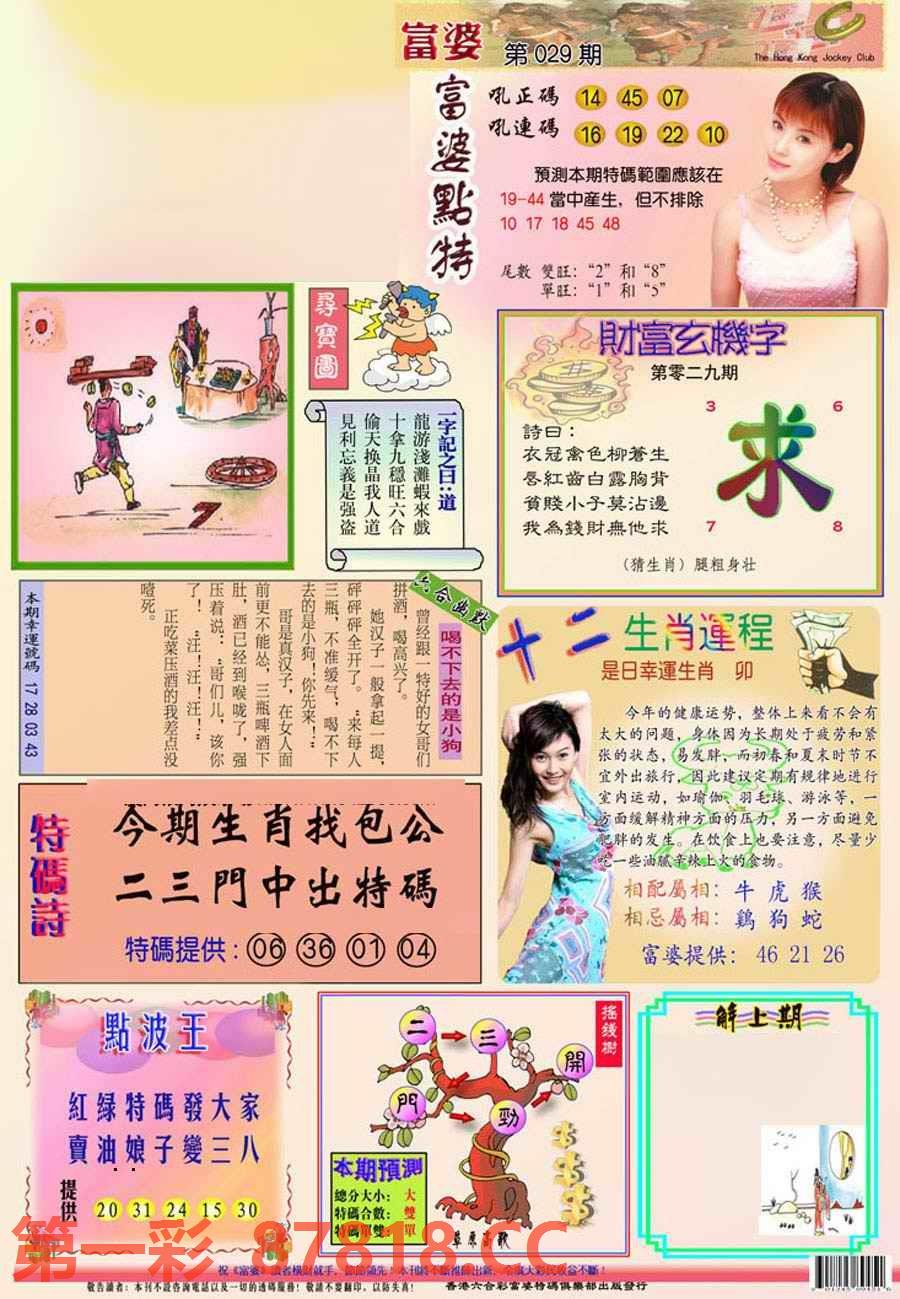 富婆 第029期
The Hong Kong Jockey Club
富婆點特
吼正碼 14 45 07
吼連碼 16 19 22 10
預測本期特碼範圍應該在
19-44 當中産生，但不排除
10 17 18 45 48
尾數 雙旺：“2”和“8”
單旺：“1”和“5”
尋寶圖
一字記之曰：道
龍游淺灘蝦來戲
十拿九穩旺六合
偷天換晶我人道
見利忘義是强盗
財富玄機字
第零二九期
3 6
求
7 8
詩曰：
衣冠禽色柳蒼生
唇紅齒白露胸背
貧賤小子莫沾邊
我為錢財無他求
（猜生肖）腿粗身壯
六合幽默
喝不下去的是小狗
曾经跟一特好的女哥们
拼酒，喝高兴了。
她汉子一般拿起一提，
砰砰砰全开了。“来每人
三瓶，不准缓气，喝不下
去的是小狗！你先来！”
哥是真汉子，在女人面
前更不能怂，三瓶啤酒下
肚，酒已经到喉咙了，强
压着说：“哥们儿，该你
了！”“汪！汪！汪！”
正吃菜压酒的我差点没
噎死。
本期幸運號碼 17 28 03 43
十二生肖運程
是日幸運生肖 卯
今年的健康运势，整体上来看不会有
太大的问题，身体因为长期处于疲劳和紧
张的状态，易发胖，而初春和夏末时节不
宜外出旅行，因此建议定期有规律地进行
室内运动，如瑜伽、羽毛球、游泳等，一
方面缓解精神方面的压力，另一方面避免
肥胖的发生。在饮食上也要注意，尽量少
吃一些油腻辛辣上火的食物。
相配屬相：牛 虎 猴
相忌屬相：鷄 狗 蛇
富婆提供：46 21 26
特碼詩
今期生肖找包公
二三門中出特碼
特碼提供：06 36 01 04
點波王
紅緑特碼發大家
賣油娘子變三八
提供 20 31 24 15 30
搖錢樹
二 三
開
門 勁
本期預測
總分大小：大
特碼合數：雙
特碼單雙：單
解上期
第一彩 87818.CC
敬告讀者：本刊不設咨詢電話以及一切的透碼服務！敬請不要翻印，以防失真！
香港六合彩富婆特碼俱樂部出版發行